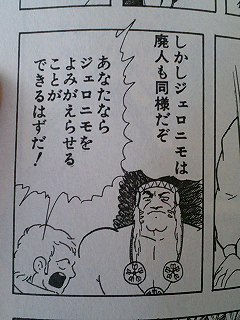 しかしジェロニモは
廃人も同様だぞ
あなたなら
ジェロニモを
よみがえらせる
ことが
できるはずだ！